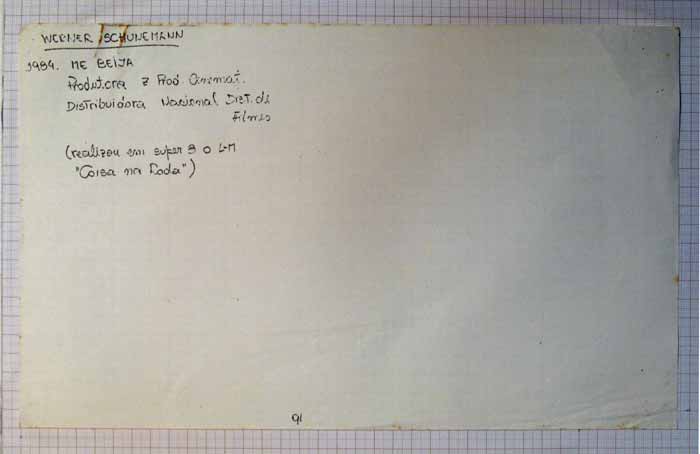 WERNER SCHUNEMANN
1984. ME BEIJA
Produtora Z Prod. Cinemat.
Distribuidora Nacional Dist. de
Filmes
(realizou em super 8 o LM
"Coisa na Roda")
91